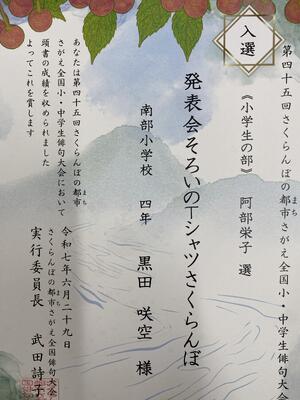 入選
第四十五回さくらんぼの都市まち
さがえ全国小・中学生俳句大会
《小学生の部》 阿部栄子 選
発表会そろいのTシャツさくらんぼ
南部小学校 四年 黒田 咲空 様
あなたは第四十五回さくらんぼの都市まち
さがえ全国小・中学生俳句大会において
頭書の成績を収められました
よってこれを賞します
令和七年六月二十九日
さくらんぼの都市まちさがえ全国俳句大会
実行委員長 武田詩子